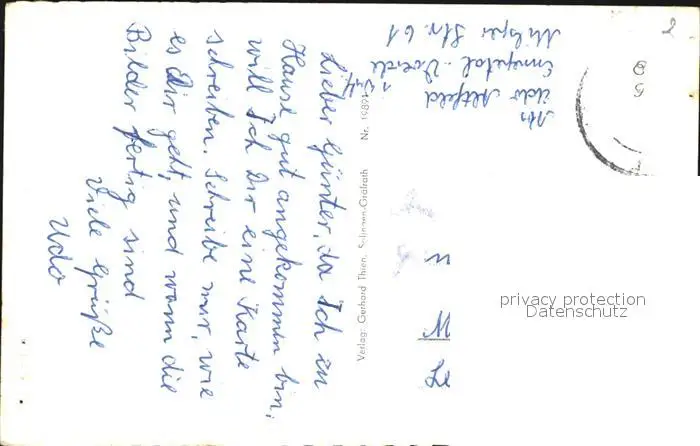 Lieber Günter, da Ich zu
Hause gut angekommen bin,
will Ich Dir eine Karte
schreiben. Schreibe mir, wie
es Dir geht, und wann die
Bilder fertig sind
Viele Grüße
Udo
Verlag: Gerhard Thien, Solingen-Gräfrath Nr. 1989
Abs
Udo Altfeld
Ennepetal-Voerde
Milsper Str. 61
2
58
privacy protection
Datenschutz